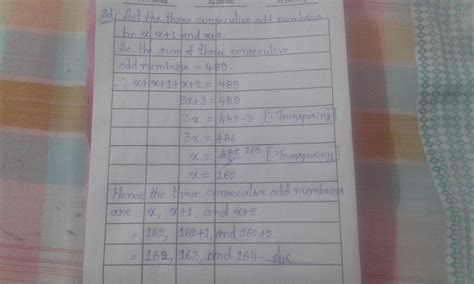 Sol: Let the three consecutive odd numbers
be x, x+1 and x+2.
So, the sum of three consecutive
odd numbers = 489.
∴ x+x+1+x+2 = 489
3x+3 = 489
3x = 489-3 [∵ Transposing]
3x = 486
x = 486 162 [∵ Transposing]
x = 162
Hence the three consecutive odd numbers
are x, x+1, and x+2
= 162, 162+1, and 162+2
= 162, 163, and 164.